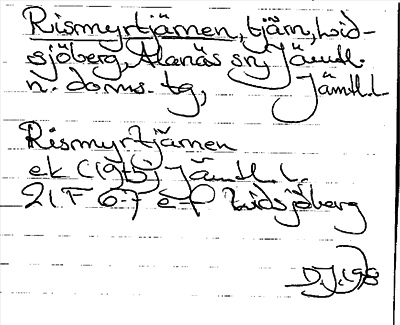 Rismyrtjärnen, tjärn, Lid-
sjöberg, Alanäs sn, Jämtl.
n. doms. tg, Jämtl.l.
Rismyrtjärnen
ek (1975) Jämtl. l.
21F 6-7 e-f Lidsjöberg